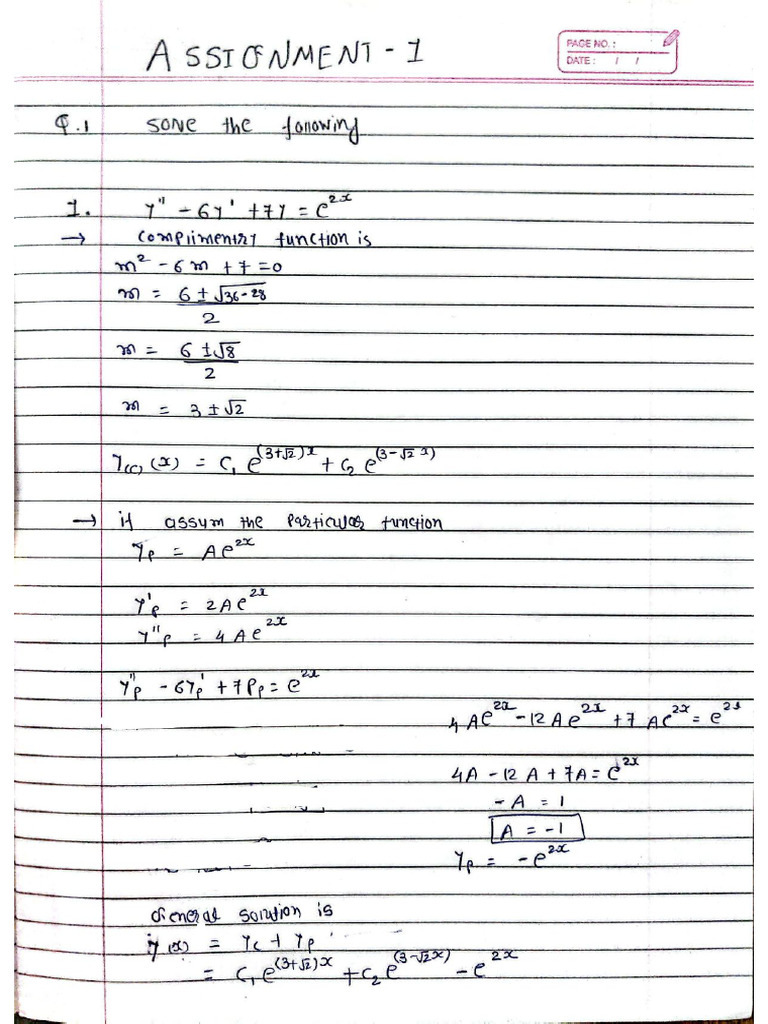 ASSIGNMENT - 1
PAGE NO. :
DATE : / /
Q.1 Solve the following
1. y'' - 6y' + 7y = e^2x
→ complimentry function is
m² - 6m + 7 = 0
m = 6 ± √36-28 / 2
m = 6 ± √8 / 2
m = 3 ± √2
y(c) (x) = C₁ e^(3+√2)x + C₂ e^(3-√2 x)
→ if assum the particular function
yp = Ae^2x
y'p = 2Ae^2x
y''p = 4Ae^2x
y''p - 6y'p + 7Pp = e^2x
4Ae^2x - 12Ae^2x + 7Ae^2x = e^2x
4A - 12A + 7A = e^2x
-A = 1
A = -1
yp = -e^2x
General solution is
y(x) = yc + yp
= C₁e^(3+√2)x + C₂e^(3-√2x) - e^2x